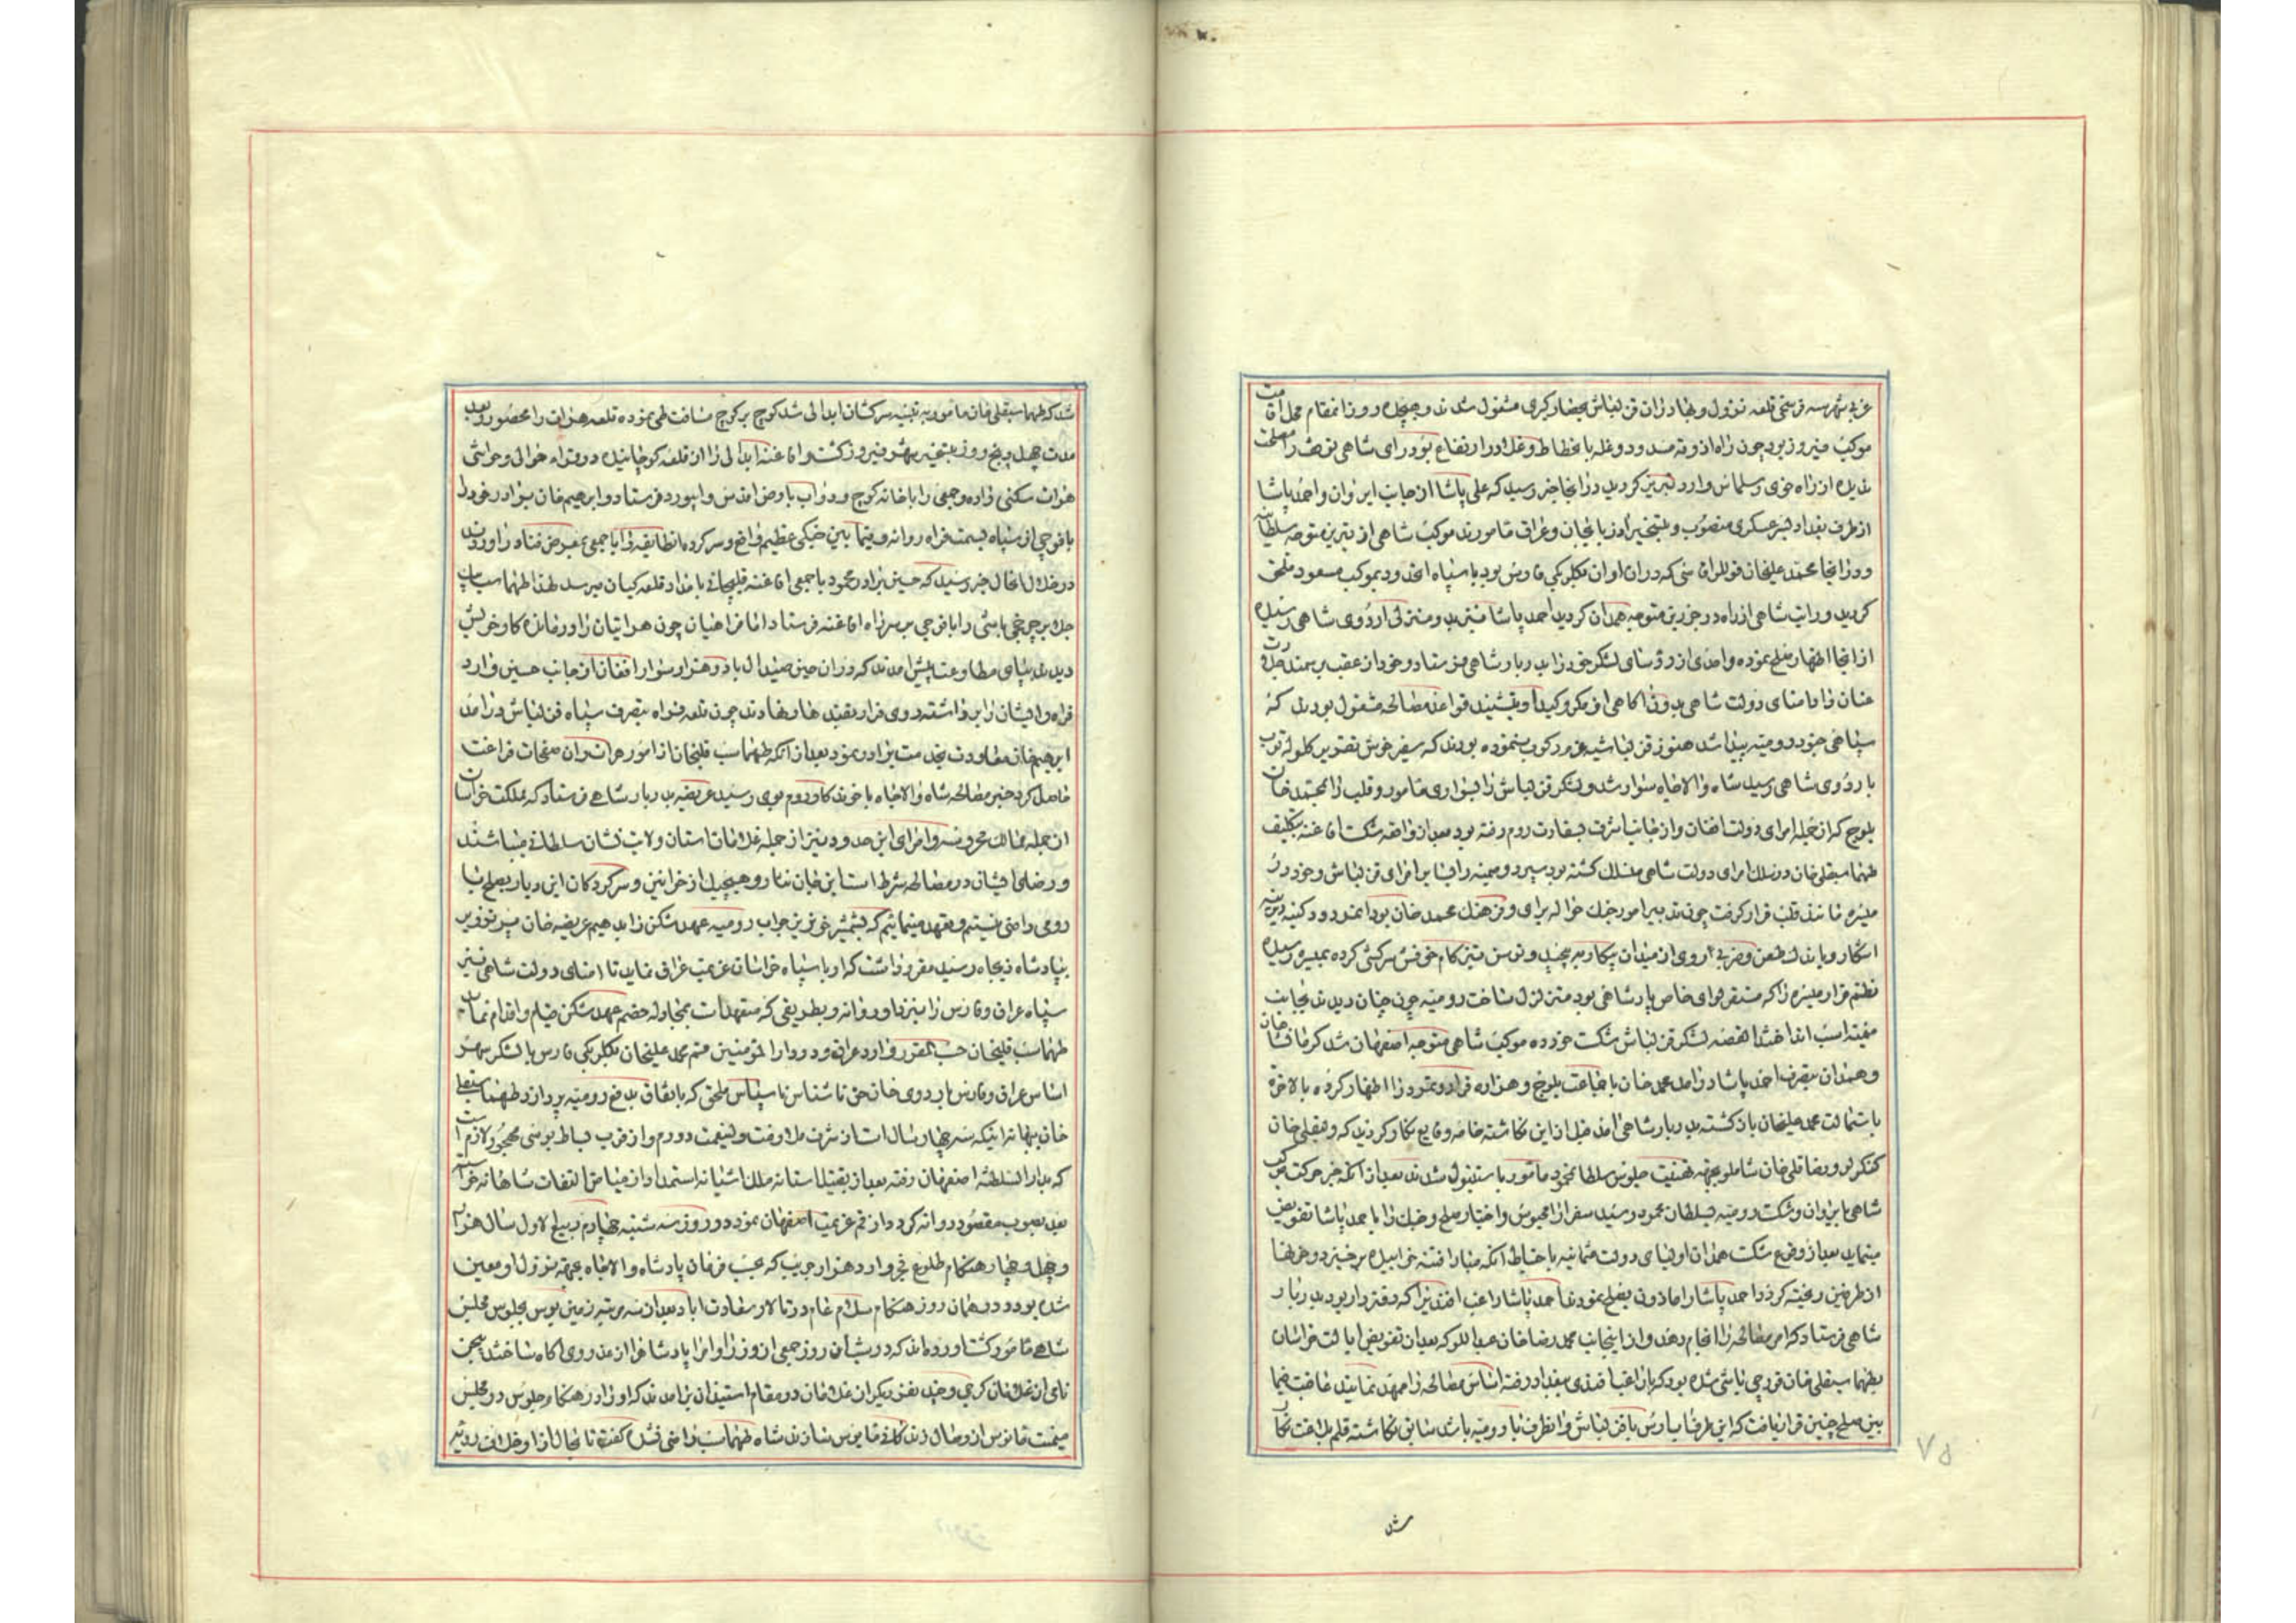 غربی شهر سه فرسخی قلعه نزول و بهادران قزلباش بحصارکیری مشغول شدند و هیجده روز انمقام محل اقامت
موکب فیروز بود چون راه اذوقه مسدود و غله بانحطاط و غلا در ارتفاع بود رای شاهی توقف را مصلحت
ندیده از راه خوی و سلماس وارد تبریز کردید در انجا خبر رسید که علی پاشا از جانب ایروان و احمد پاشا
از طرف بغداد بسرعسکری منصوب و بتسخیر اذربایجان و عراق مامورند موکب شاهی از تبریز متوجه سلطانیه
و در انجا محمد علیخان قوللراقاسی که در ان اوان بیکلربیکی فارس بود با سپاه انحدود بموکب مسعود ملحق
کردید و رایت شاهی از راه درجزین متوجه همدان کردید احمد پاشا نیز بدو منزلی اردوی شاهی رسیده
از انجا اظهار صلح نموده واحدی از رؤسای لشکر خود را بدربار شاهی فرستاد و خود از عقب بر سمند جلادت
عنان داد امنای دولت شاهی بدون اکاهی از مکر و کید او بتشیید قواعد مصالحه مشغول بودند که
سیاهی جنود رومیه پیدا شد هنوز قزلباشیه عزم رکوب ننموده بودند که سفیر خوش تقریر کلوله توپ
باردوی شاهی رسید شاه والاجاه سوار شد و لشکر قزلباش را بسواری مامور و قلب را بمحمد خان
بلوچ که از جمله امرای دولت افغان و از جانب اشرف بسفارت روم رفته بود بعد از واقعه شکست افاغنه بتکلیف
طهماسبقلی خان در سلک امرای دولت شاهی منسلک کشته بود سپرد و میمنه را بسایر امرای قزلباش و خود در
میسره مانند قلب قرار کرفت چون تدبیر امور جنک حواله برای و فرهنک محمد خان بود انمردود کینه دیرینه
اشکار و باندک طعن و ضربی روی از میدان پیکار بر پیچید و توسن تیز کام خی فش سرکشی کرده بمیسره رسیده
نظم قرار میسره را که مستقر لوای خاص پادشاهی بود متزلزل ساخت رومیه چون چنان دیدند بجانب
میمنه اسب انداختند القصه لشکر قزلباش شکست خورده موکب شاهی متوجه اصفهان شد کرمانشاهان
و همدان بتصرف احمد پاشا درامد محمد خان با جماعت بلوچ و هزاره فرار و تمرد را اظهار کرده بالاخره
باستمالت محمد علیخان بازکشته بدربار شاهی امد قبل از این نکاشته خامه وقایع نکار کردید که ولیقلی خان
کنکرلو و رضا قلی خان شاملو بجهه تهنیت جلوس سلطان محمود مامور باستنبول شدند بعد از انکه خبر حرکت موکب
شاهی بایروان و شکست رومیه بسلطان محمود رسید سفرا را محبوس و اختیار صلح و جنک را باحمد پاشا تفویض
مینماید بعد از وقوع شکست همدان اولیای دولت عثمانیه باحتیاط انکه مبادا فتنه خوابیده برخیزد و خونها
از طرفین ریخته کردد احمد پاشا را ماذون بصلح نمودند احمد پاشا راغب افندی را که دفتردار بود بدربار
شاهی فرستاد که امر مصالحه را انجام دهد و از اینجانب محمد رضا خان عبداللو که بعد از تفویض ایالت خراسان
بطهماسبقلی خان قورچی باشی شده بود که با راغب افندی ببغداد رفته اساس مصالحه را ممهد نمایند عاقبت فیما
بین صلح چنین قرار یافت که این طرف اب ارس با قزلباش و انطرف با رومیه باشد سابق نکاشته قلم بلاغت نکار
۷۵
شد
شد که طهماسبقلی خان مامور به تنبیه سرکشان ابدالی شد کوچ بر کوچ مسافت طی نموده قلعه هرات را محصور و بعد
مدت چهل و پنج روز بتسخیر شهر فیروز کشت و افاغنه ابدالی را از ان قلعه کوچانیده در قراء حوالی و حواشی
هرات سکنی داده و جمعی را با خانه کوچ و دواب بارض اقدس و ابیورد فرستاد و ابرهیم خان برادر خود را
با فوجی از سپاه بسمت فراه روانه و فیما بین جنکی عظیم واقع و سرکرده انطایفه را با جمعی بمعرض فنا دراوردند
در خلال انحال خبر رسید که حسین برادر محمود با جمعی افاغنه قلیجائی بامداد قلعه کیان میرسد لهذا طهماسب بیک
جلایر چرخچی باشی را با فوجی بر سر راه افاغنه فرستاد اما فراهیان چون هراتیان را درمانده کار خویش
دیدند بپای مطاوعت پیش امدند که در ان حین صیدال با دو هزار سوار افغان از جانب حسین وارد
فراه و ایشان را بر داشته روی فرار بقندهار نهادند چون قلعه فراه بتصرف سپاه قزلباش درامد
ابرهیم خان معاودت بخدمت برادر نمود بعد از انکه طهماسب قلیخان از امور هرات و ان صفحات فراغت
حاصل کرد خبر مصالحه شاه والاجاه با خوندکار روم بوی رسید عریضه بدربار شاهی فرستاد که مملکت خراسان
از جمله ممالک محروسه و امرای این حدود نیز از جمله غلامان استان ولایت نشان سلطانی میباشند
و رضای ایشان در مصالحه شرط است این جان نثار و هیچیک از خوانین و سرکردکان این دیار بصلح با
رومی راضی نیستیم و تعهد مینمائیم که بشمشیر خونریز جواب رومیه عهد شکن را بدهیم عریضه خان میر توزویر
بپادشاه ذیجاه رسید مقرر داشت که او با سپاه خراسان عزیمت عراق نماید تا امنای دولت شاهی نیز
سپاه عراق و فارس را نیز با او روانه و بطریقی که متعهد است بمجادله خصم عهد شکن قیام و اقدام نماید
طهماسب قلیخان حسب المقرر وارد عراق و در دار المؤمنین قم محمد علیخان بیکلربیکی فارس با لشکر بهر
اساس عراق و فارس باردوی خان حق ناشناس ناسپاس ملحق که باتفاق بدفع رومیه پردازد طهماسبقلی
خان ببهانه اینکه سه چهار سال است از شرف ملازمت ولینعمت دورم و از قرب بساط بوسی مهجور لازم است
که بدار السلطنه اصفهان رفته بعد از تقبیل استانه ملک اشیانه استمداد از میامن التفات شاهانه خواسته
بعد بصوب مقصود روانه کردد از قم عزیمت اصفهان نمود و در روز سه شنبه چهاردم ربیع الاول سال هزار
و چهل و چهار هنکام طلوع فجر وارد هزار جریب که بحسب فرمان پادشاه والاجاه بجهه نزول او معین
شده بود و در همان روز هنکام سلام عام در تالار سعادت اباد بعد از سه مرتبه زمین بوس بجلوس مجلس
شاهی مامور کشت اورده اند که در شب ان روز جمعی از وزرا و امرا پادشاه را از بدروی اکاه ساختند بیجن
نامی از غلامان کرجی و چند نفر دیکر از غلامان در مقام استیذان برامدند که او را در هنکام جلوس در مجلس
میمنت مانوس از وصال زندکانی مایوس سازند شاه طهماسب راضی نشده کفت تا بحال از او خلاف رویه